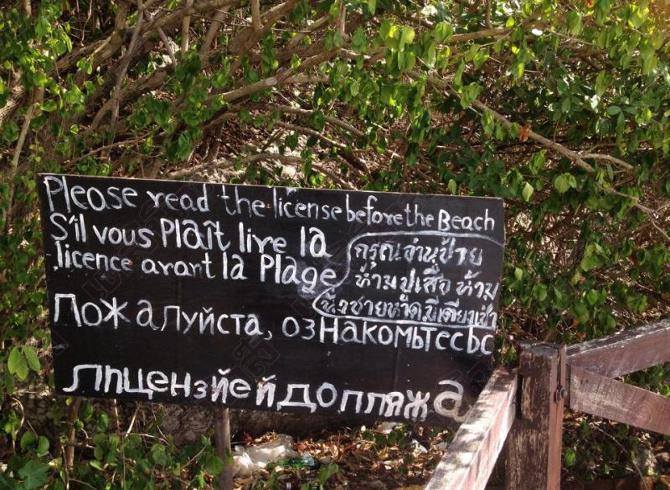 Please read the license before the Beach
S'il vous Plaît lire la
licence avant la Plage
กรุณาอ่านป้าย
ห้ามปูเสื่อ ห้าม
นั่งชายหาดมีเตียงเช่า
Пожалуйста, ознакомьтесьс
лицензйей до пляжа